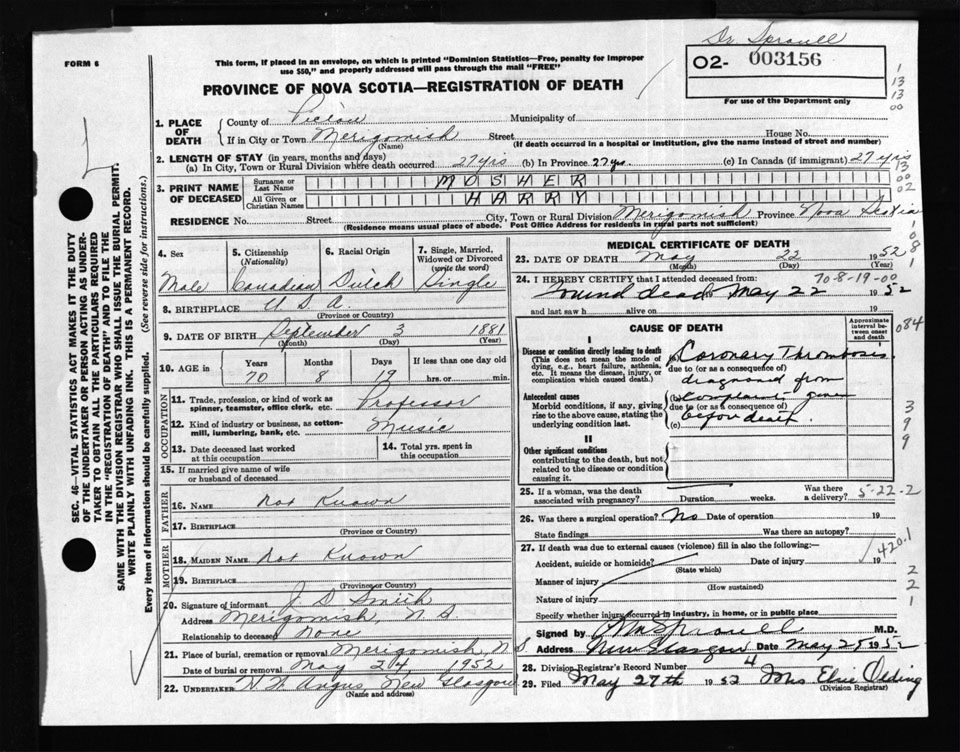 Dr Sproull
FORM 6
This form, if placed in an envelope, on which is printed "Dominion Statistics—Free, penalty for improper
use $50," and properly addressed will pass through the mail "FREE"
O2- 003156
PROVINCE OF NOVA SCOTIA—REGISTRATION OF DEATH
For use of the Department only
1. PLACE OF DEATH
County of Pictou Municipality of
If in City or Town Merigomish Street House No.
(Name) (If death occurred in a hospital or institution, give the name instead of street and number)
2. LENGTH OF STAY (in years, months and days)
(a) In City, Town or Rural Division where death occurred 27 yrs (b) In Province 27 yrs. (c) In Canada (if immigrant) 27 yrs
3. PRINT NAME OF DECEASED
Surname or Last Name MOSHER
All Given or Christian Names HARRY
RESIDENCE No. Street City, Town or Rural Division Merigomish Province Nova Scotia
(Residence means usual place of abode. Post Office Address for residents in rural parts not sufficient)
4. Sex
Male
5. Citizenship
(Nationality)
Canadian
6. Racial Origin
Dutch
7. Single, Married,
Widowed or Divorced
(write the word)
Single
8. BIRTHPLACE U.S.A.
(Province or Country)
9. DATE OF BIRTH September 3 1881
(Month) (Day) (Year)
10. AGE in Years Months Days If less than one day old
70 8 19 hrs. or min.
OCCUPATION
11. Trade, profession, or kind of work as
spinner, teamster, office clerk, etc. Professor
12. Kind of industry or business, as cotton-
mill, lumbering, bank, etc. Music
13. Date deceased last worked
at this occupation
14. Total yrs. spent in
this occupation
15. If married give name of wife
or husband of deceased
FATHER
16. NAME Not Known
17. BIRTHPLACE
(Province or Country)
MOTHER
18. MAIDEN NAME Not Known
19. BIRTHPLACE
(Province or Country)
20. Signature of informant J D Smith
Address Merigomish, N. S.
Relationship to deceased None
21. Place of burial, cremation or removal Merigomish, N S.
Date of burial or removal May 24 1952
22. UNDERTAKER H. W. Angus New Glasgow
(Name and address)
MEDICAL CERTIFICATE OF DEATH
23. DATE OF DEATH May 22 1952
(Month) (Day) (Year)
24. I HEREBY CERTIFY that I attended deceased from: 70-8-19-00
Found dead May 22 1952
and last saw h alive on 19
CAUSE OF DEATH
Approximate interval between onset and death
I
Disease or condition directly leading to death
(This does not mean the mode of
dying, e.g., heart failure, asthenia,
etc. It means the disease, injury, or
complication which caused death.)
(a) Coronary Thrombosis
due to (or as a consequence of)
diagnosed from
Antecedent causes
Morbid conditions, if any, giving
rise to the above cause, stating the
underlying condition last.
(b) complaint given
due to (or as a consequence of)
before death.
(c)
II
Other significant conditions
contributing to the death, but not
related to the disease or condition
causing it.
25. If a woman, was the death
associated with pregnancy? Duration weeks. Was there
a delivery? 5-22-2
26. Was there a surgical operation? No Date of operation 19
State findings Was there an autopsy?
27. If death was due to external causes (violence) fill in also the following:—
Accident, suicide or homicide? Date of injury 19
(State which)
420.1
Manner of injury
(How sustained)
Nature of injury
Specify whether injury occurred in industry, in home, or in public place
Signed by Sproull M.D.
Address New Glasgow Date May 25 1952
28. Division Registrar's Record Number 4
29. Filed May 27th 1952 Mrs Elsie Olding
(Division Registrar)
SEC. 46—VITAL STATISTICS ACT MAKES IT THE DUTY
OF THE UNDERTAKER OR PERSON ACTING AS UNDER-
TAKER TO OBTAIN ALL THE PARTICULARS REQUIRED
IN THE "REGISTRATION OF DEATH" AND TO FILE THE
SAME WITH THE DIVISION REGISTRAR WHO SHALL ISSUE THE BURIAL PERMIT.
WRITE PLAINLY WITH UNFADING INK. THIS IS A PERMANENT RECORD.
Every item of information should be carefully supplied. (See reverse side for instructions.)
1
13
13
00
13
00
02
1
0
8
1
084
3
9
9
2
2
1